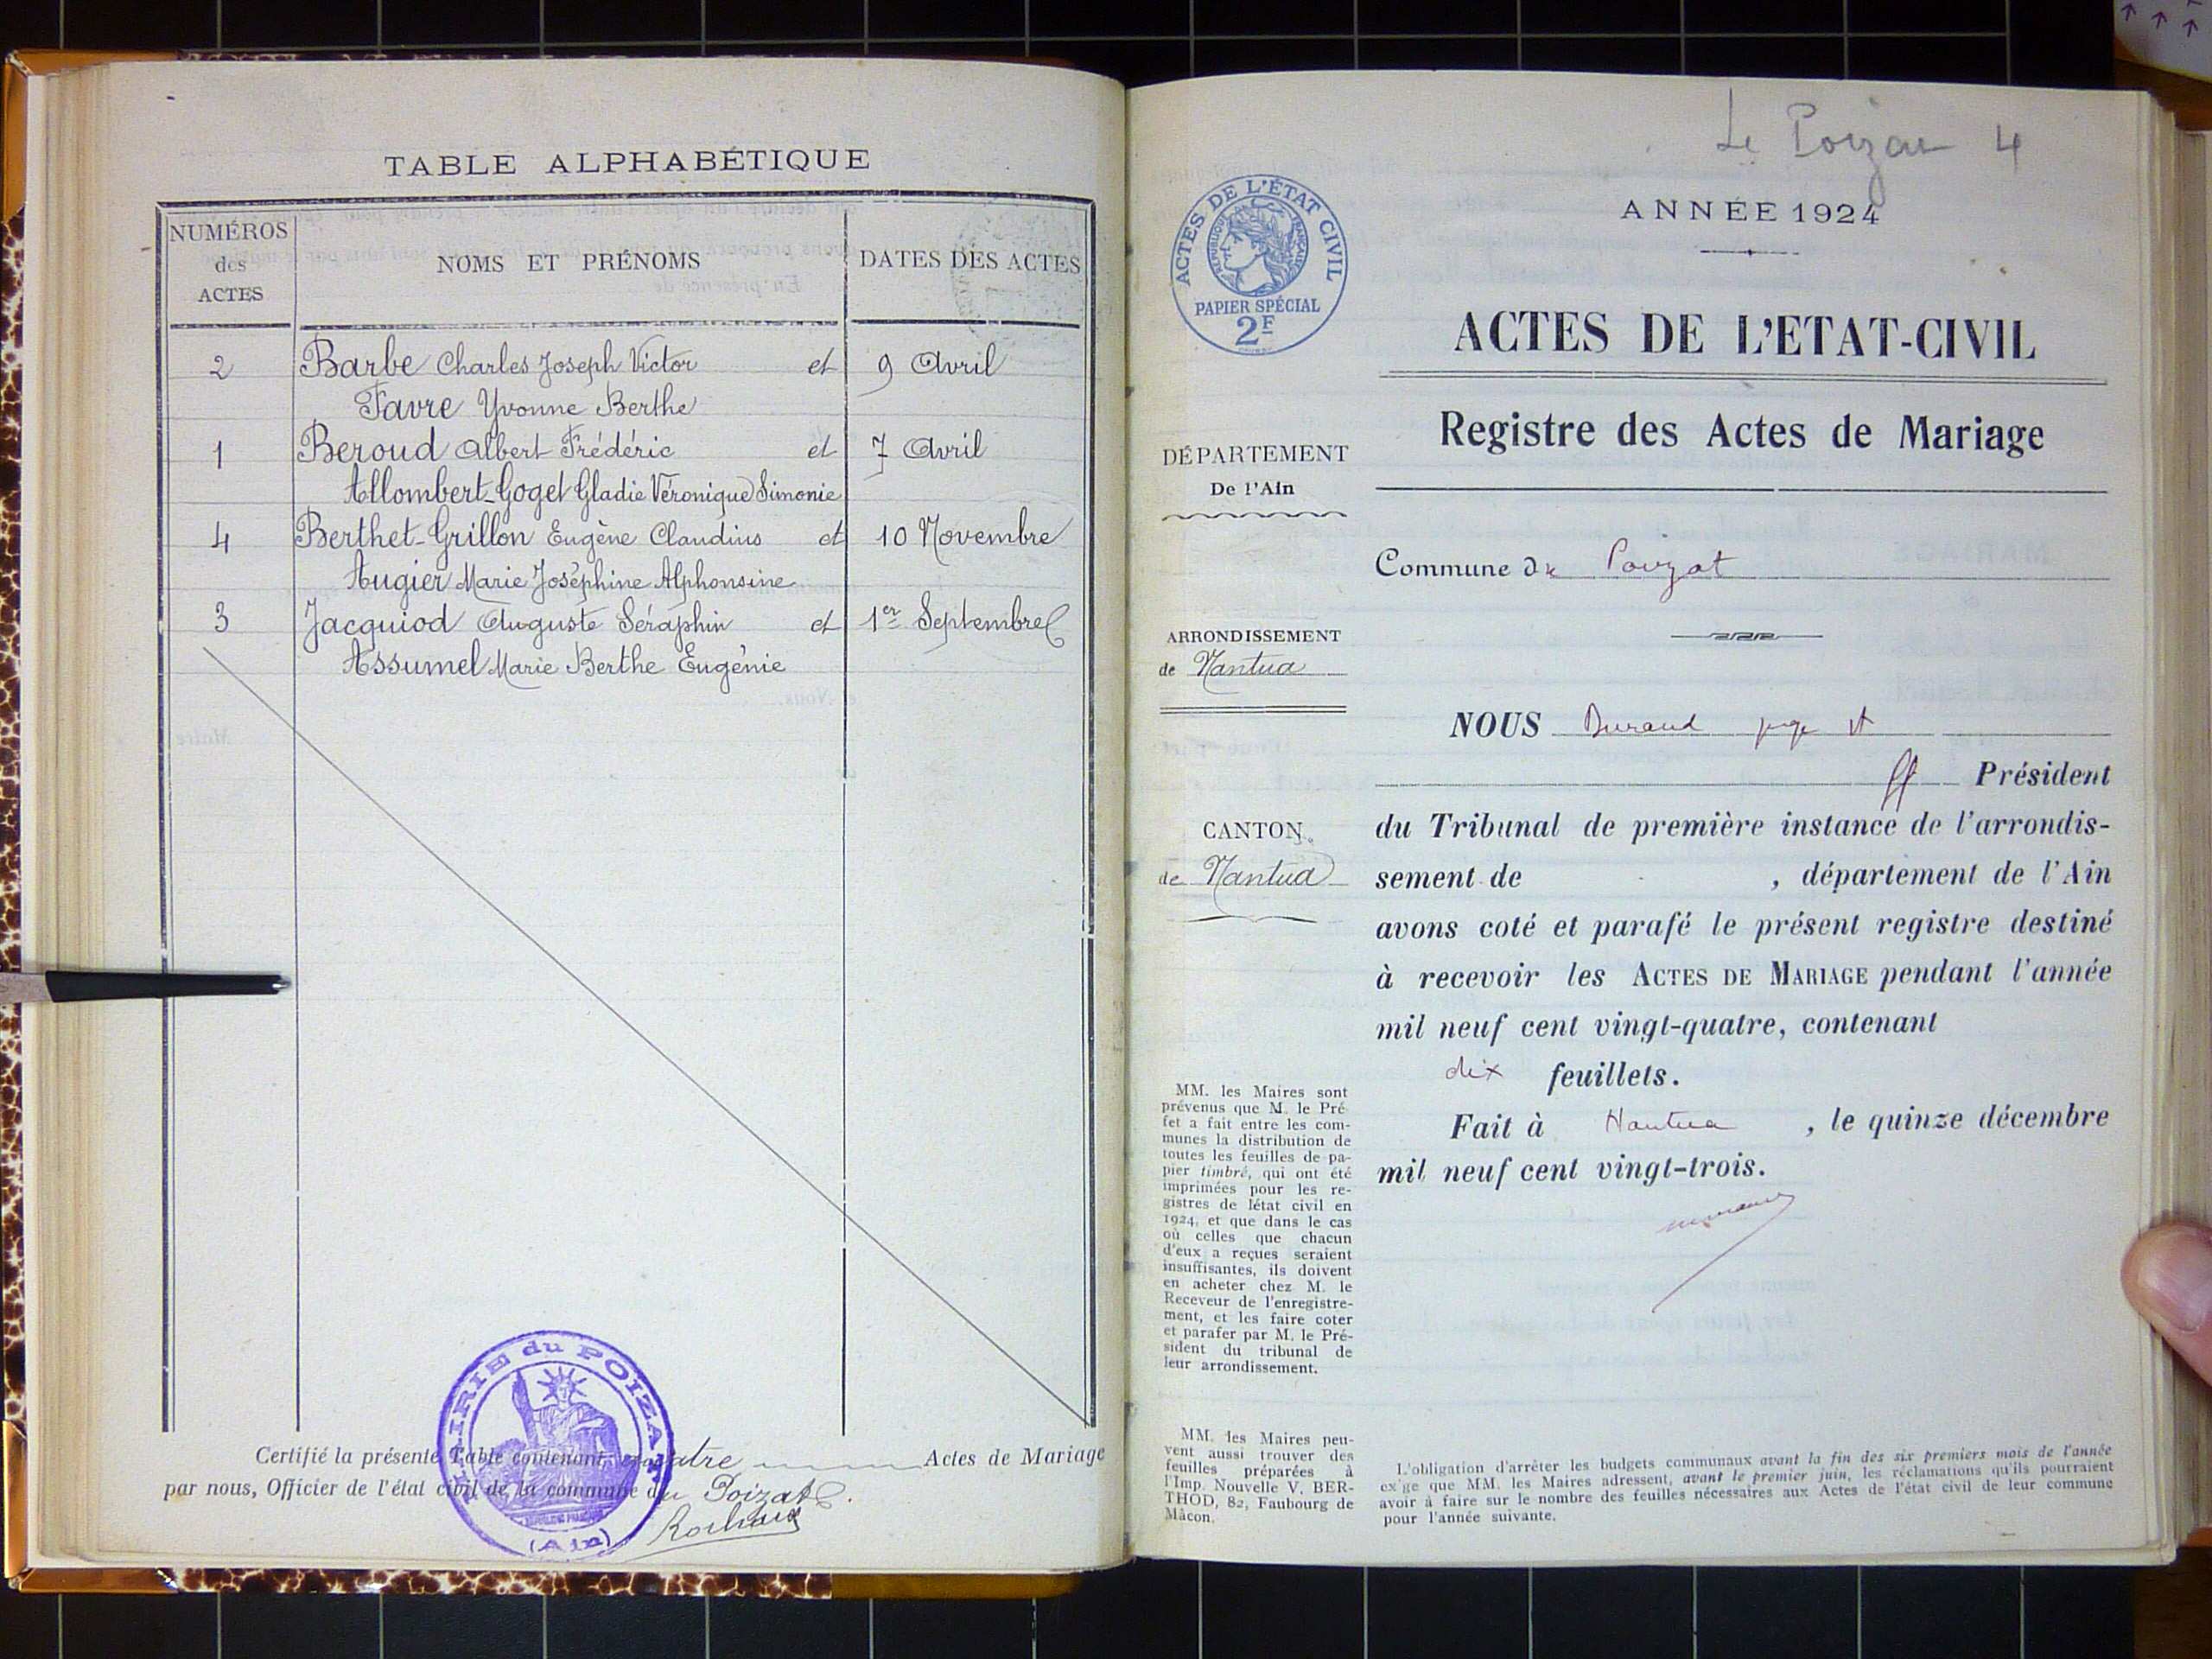 TABLE ALPHABÉTIQUE
NUMÉROS
des
ACTES
NOMS ET PRÉNOMS
DATES DES ACTES
2 Barbe Charles Joseph Victor et 9 Avril
Favre Yvonne Berthe
1 Beroud Albert Frédéric et 7 Avril
Allombert-Goget Gladie Véronique Simonie
4 Berthet-Grillon Eugène Claudius et 10 Novembre
Augier Marie Joséphine Alphonsine
3 Jacquiod Auguste Séraphin et 1er Septembre
Assumel Marie Berthe Eugénie
Certifié la présente Table contenant quatre Actes de Mariage
par nous, Officier de l'état civil de la commune du Poizat.
MAIRIE du POIZAT
(Ain)
Le Poizat 4
ACTES DE L'ÉTAT CIVIL
RÉPUBLIQUE FRANÇAISE
PAPIER SPÉCIAL
2F
ANNÉE 1924
ACTES DE L'ETAT-CIVIL
Registre des Actes de Mariage
DÉPARTEMENT
De l'Ain
Commune de Poizat
ARRONDISSEMENT
de Nantua
CANTON
de Nantua
NOUS Durand juge
ff Président
du Tribunal de première instance de l'arrondis-
sement de , département de l'Ain
avons coté et parafé le présent registre destiné
à recevoir les ACTES DE MARIAGE pendant l'année
mil neuf cent vingt-quatre, contenant
dix feuillets.
Fait à Nantua , le quinze décembre
mil neuf cent vingt-trois.
MM. les Maires sont
prévenus que M. le Pré
fet a fait entre les com-
munes la distribution de
toutes les feuilles de pa-
pier timbré, qui ont été
imprimées pour les re-
gistres de létat civil en
1924, et que dans le cas
où celles que chacun
d'eux a reçues seraient
insuffisantes, ils doivent
en acheter chez M. le
Receveur de l'enregistre-
ment, et les faire coter
et parafer par M. le Pré-
sident du tribunal de
leur arrondissement.
MM. les Maires peu-
vent aussi trouver des
feuilles préparées à
l'Imp. Nouvelle V. BER-
THOD, 82, Faubourg de
Mâcon.
L'obligation d'arrêter les budgets communaux avant la fin des six premiers mois de l'année
ex ge que MM. les Maires adressent, avant le premier juin, les réclamations qu'ils pourraient
avoir à faire sur le nombre des feuilles nécessaires aux Actes de l'état civil de leur commune
pour l'année suivante.